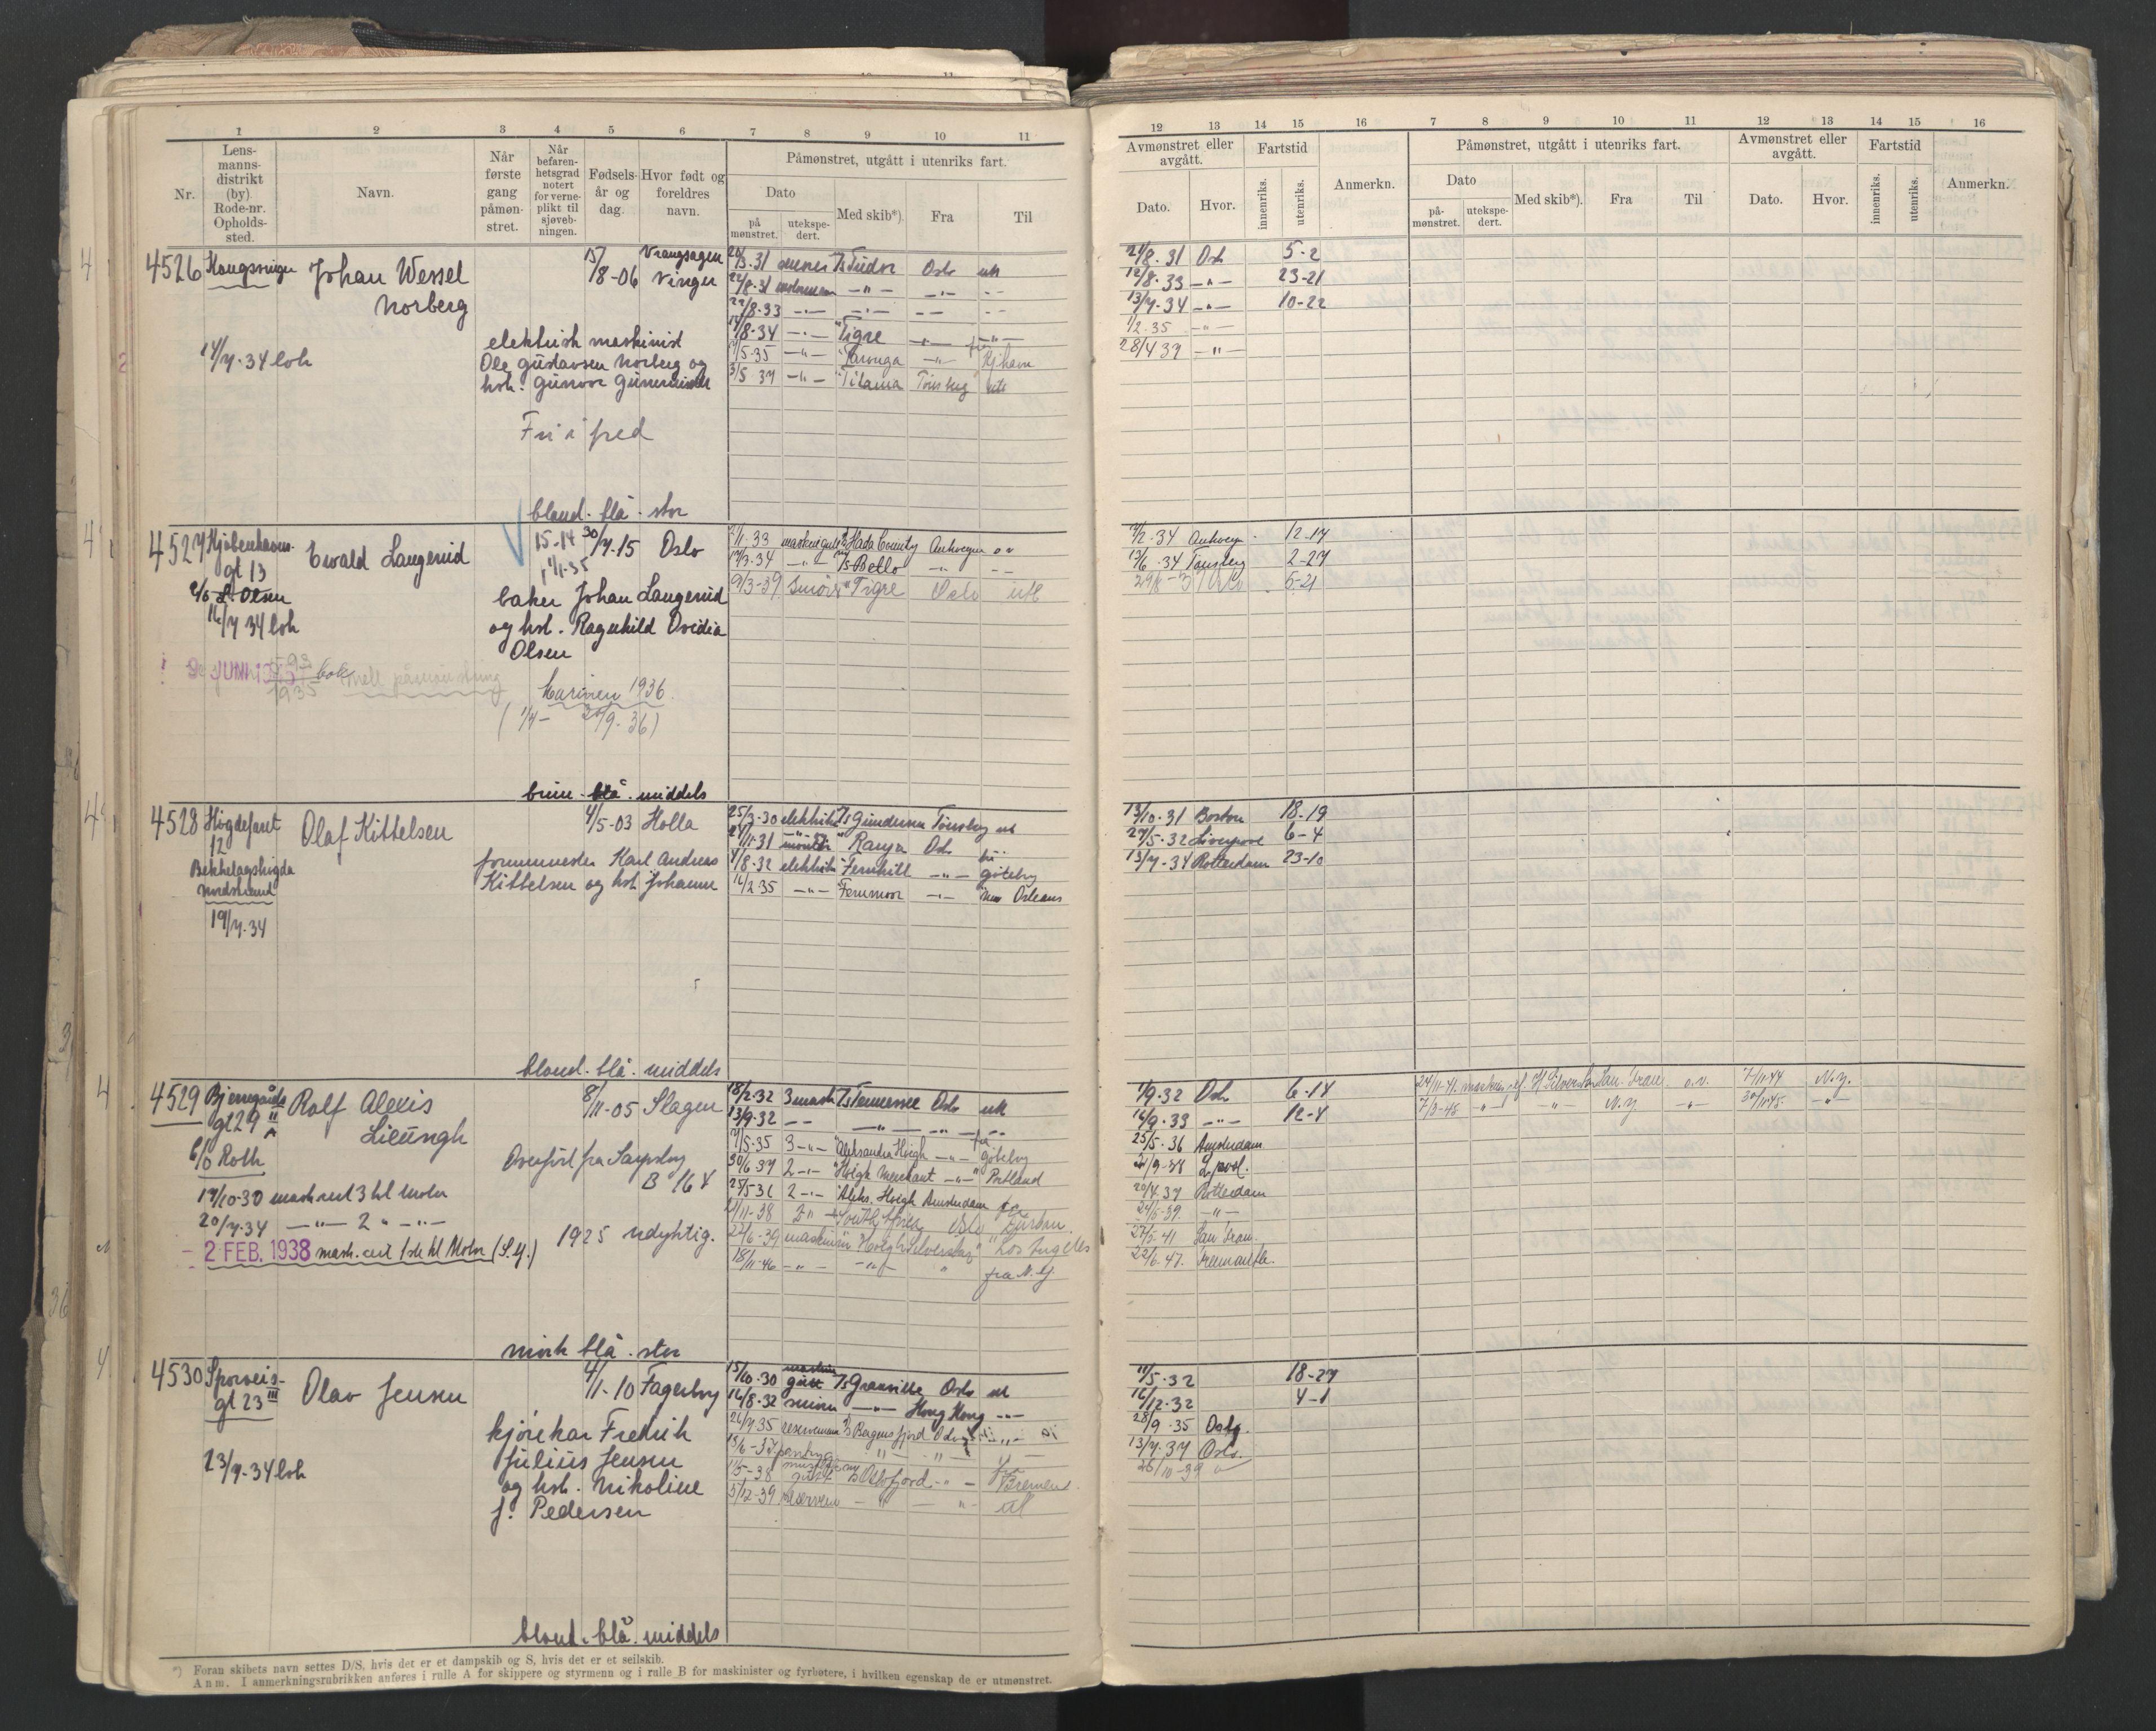 1 2 3 4 5 6 7 8 9 10 11
Nr.
Lens-
manns-
distrikt
(by)
Rode-nr.
Opholds-
sted.
Navn.
Når
første
gang
påmøn-
stret.
Når
befaren-
hetsgrad
notert
for verne-
plikt til
sjøveb-
ningen.
Fødsels-
år og
dag.
Hvor født og
foreldres
navn.
Påmønstret, utgått i utenriks fart.
Dato
på
mønstret.
utekspe-
dert.
Med skib*).
Fra
Til
4526 Johan Wessel
Norberg
15/8-06 Vrangsagen
Vinger
14/7-34 loh
elektrisk maskinist
Ole Gustavsen Norberg og
hst. Gunvor
Fri i fred
20/3-31 Ts Tudor Oslo utl
22/8-31 -"- -"- -"-
22/8-33 -"- -"- -"-
14/8-34 -"- "Tigre -"- -"-
-"- "Taronga -"- fra Kjhavn
3/5 37 -"- "Titania Tønsberg utl
blond. blå. stor
4527 Kjøbenhavns-
gt 13
c/o L. Olsen
Ewald Langerud
15-14
30/7-15 Oslo
16/7 34 loh
baker Johan Langerud
og hst. Ragnhild Ovidia
Olsen
JUNI 1935
påmønstring
Marinen 1936
Antwerpen
-"- Ts Bello -"-
9/3-39 "Tigre Oslo utl
brun. blå. middels
4528 Høgdefaret
12
Bekkelagshøgda
Nordstrand
Olaf Kittelsen
4/5-03 Holla
19/7-34
Karl Andreas
Kittelsen og hst. Johanne
25/3-30 Ts Gunderson Tønsberg utl
"Ranja Oslo
4/8-32 "Fernhill -"- fra Göteborg
14/2-35 -"- "Fernmoor -"- "New Orleans
blond. blå. middels
4529 Bjerregårds
gt 29 II
c/o Roth
Rolf Alexis
Lieungh
8/11-05 Slagen
Overført fra Sarpsborg
17/10-30 mask.cert 3 kl Motor
20/7-34 -"- 2 " -"-
- 2 FEB. 1938 mask. cert 1ste kl Motor
1925 udyktig.
18/2-32 3 mask Ts Tennessee Oslo utl
13/9-32 -"- -"- -"-
3 -"- "Aleksandra Høegh -"- fra Göteborg
30/6-37 2 -"- "Høegh Merchant -"- "Portland
25/5-36 2 -"- "Aleks. Høegh Amsterdam
11-38 2 " South Africa Oslo Durban.
22/6-39 "Høegh Silverstar" "Los Angeles
18/11-46 -"- -"- " fra N.Y.
mørk blå. stor
4530 Sporveis-
gt 23 III
Olav Jensen
4/11-10 Fagerborg
23/7-34 loh
kjørekar Fredrik
Julius Jensen
og hst. Nikoline
J. Pedersen
15/10-30 maskin
gutt Ts Granville Oslo utl
16/8-32 -"- Hong Kong -"-
26/7-35 Bergensfjord Oslo
13/6-37
Oslofjord -"- Fr Bremen.
5/12-39 -"- -"- utl
blond. blå. middels
*) Foran skibets navn settes D/S, hvis det er et dampskib og S, hvis det er et seilskib.
Anm. I anmerkningsrubrikken anføres i rulle A for skippere og styrmenn og i rulle B for maskinister og fyrbøtere, i hvilken egenskap de er utmønstret.
12 13 14 15 16 7 8 9 10 11 12 13 14 15 16
Avmønstret eller
avgått.
Fartstid
Anmerkn.
Dato.
Hvor.
innenriks.
utenriks.
Påmønstret, utgått i utenriks fart.
Dato
på-
mønstret.
utekspe-
dert.
Med skib*).
Fra
Til
Avmønstret eller
avgått.
Dato.
Hvor.
Fartstid
innenriks.
utenriks.
Anmerkn.
21/8.31 Oslo 5-2
12/8.33 -"- 23-21
13/7-34 -"- 10-22
1/2.35 -"-
28/4 37 -"-
Antwerpen 12-17
13/6.34 Tønsberg 2-27
Oslo 5-21
13/10.31 Boston 18-19
27/5.32 Liverpool 6-4
13/7-34 Rotterdam 23-10
1/9.32 Oslo 6-14
16/9.33 -"- 12-4
25/5.36 Amsterdam
21/9-38 L.pool.
20/4.37 Rotterdam
24/5-39. -"-
27/5-41 San Fran.
22/6-47. Fremantle.
24/11-41. H. Silverstar San. Fran. o.v. 7/11-44 N.y.
7/3-45 -"- -"- N.Y -"- 30/11-45. -"-
11/5-32 18-27
16/12.32 4-1
28/9.35 Oslo.
13/7.37 Oslo.
26/10-39